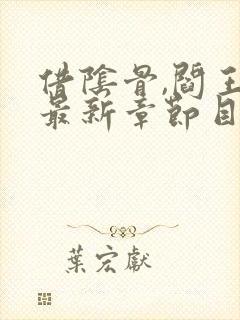 借陰骨,閻王
最新章節目
葉宏獻